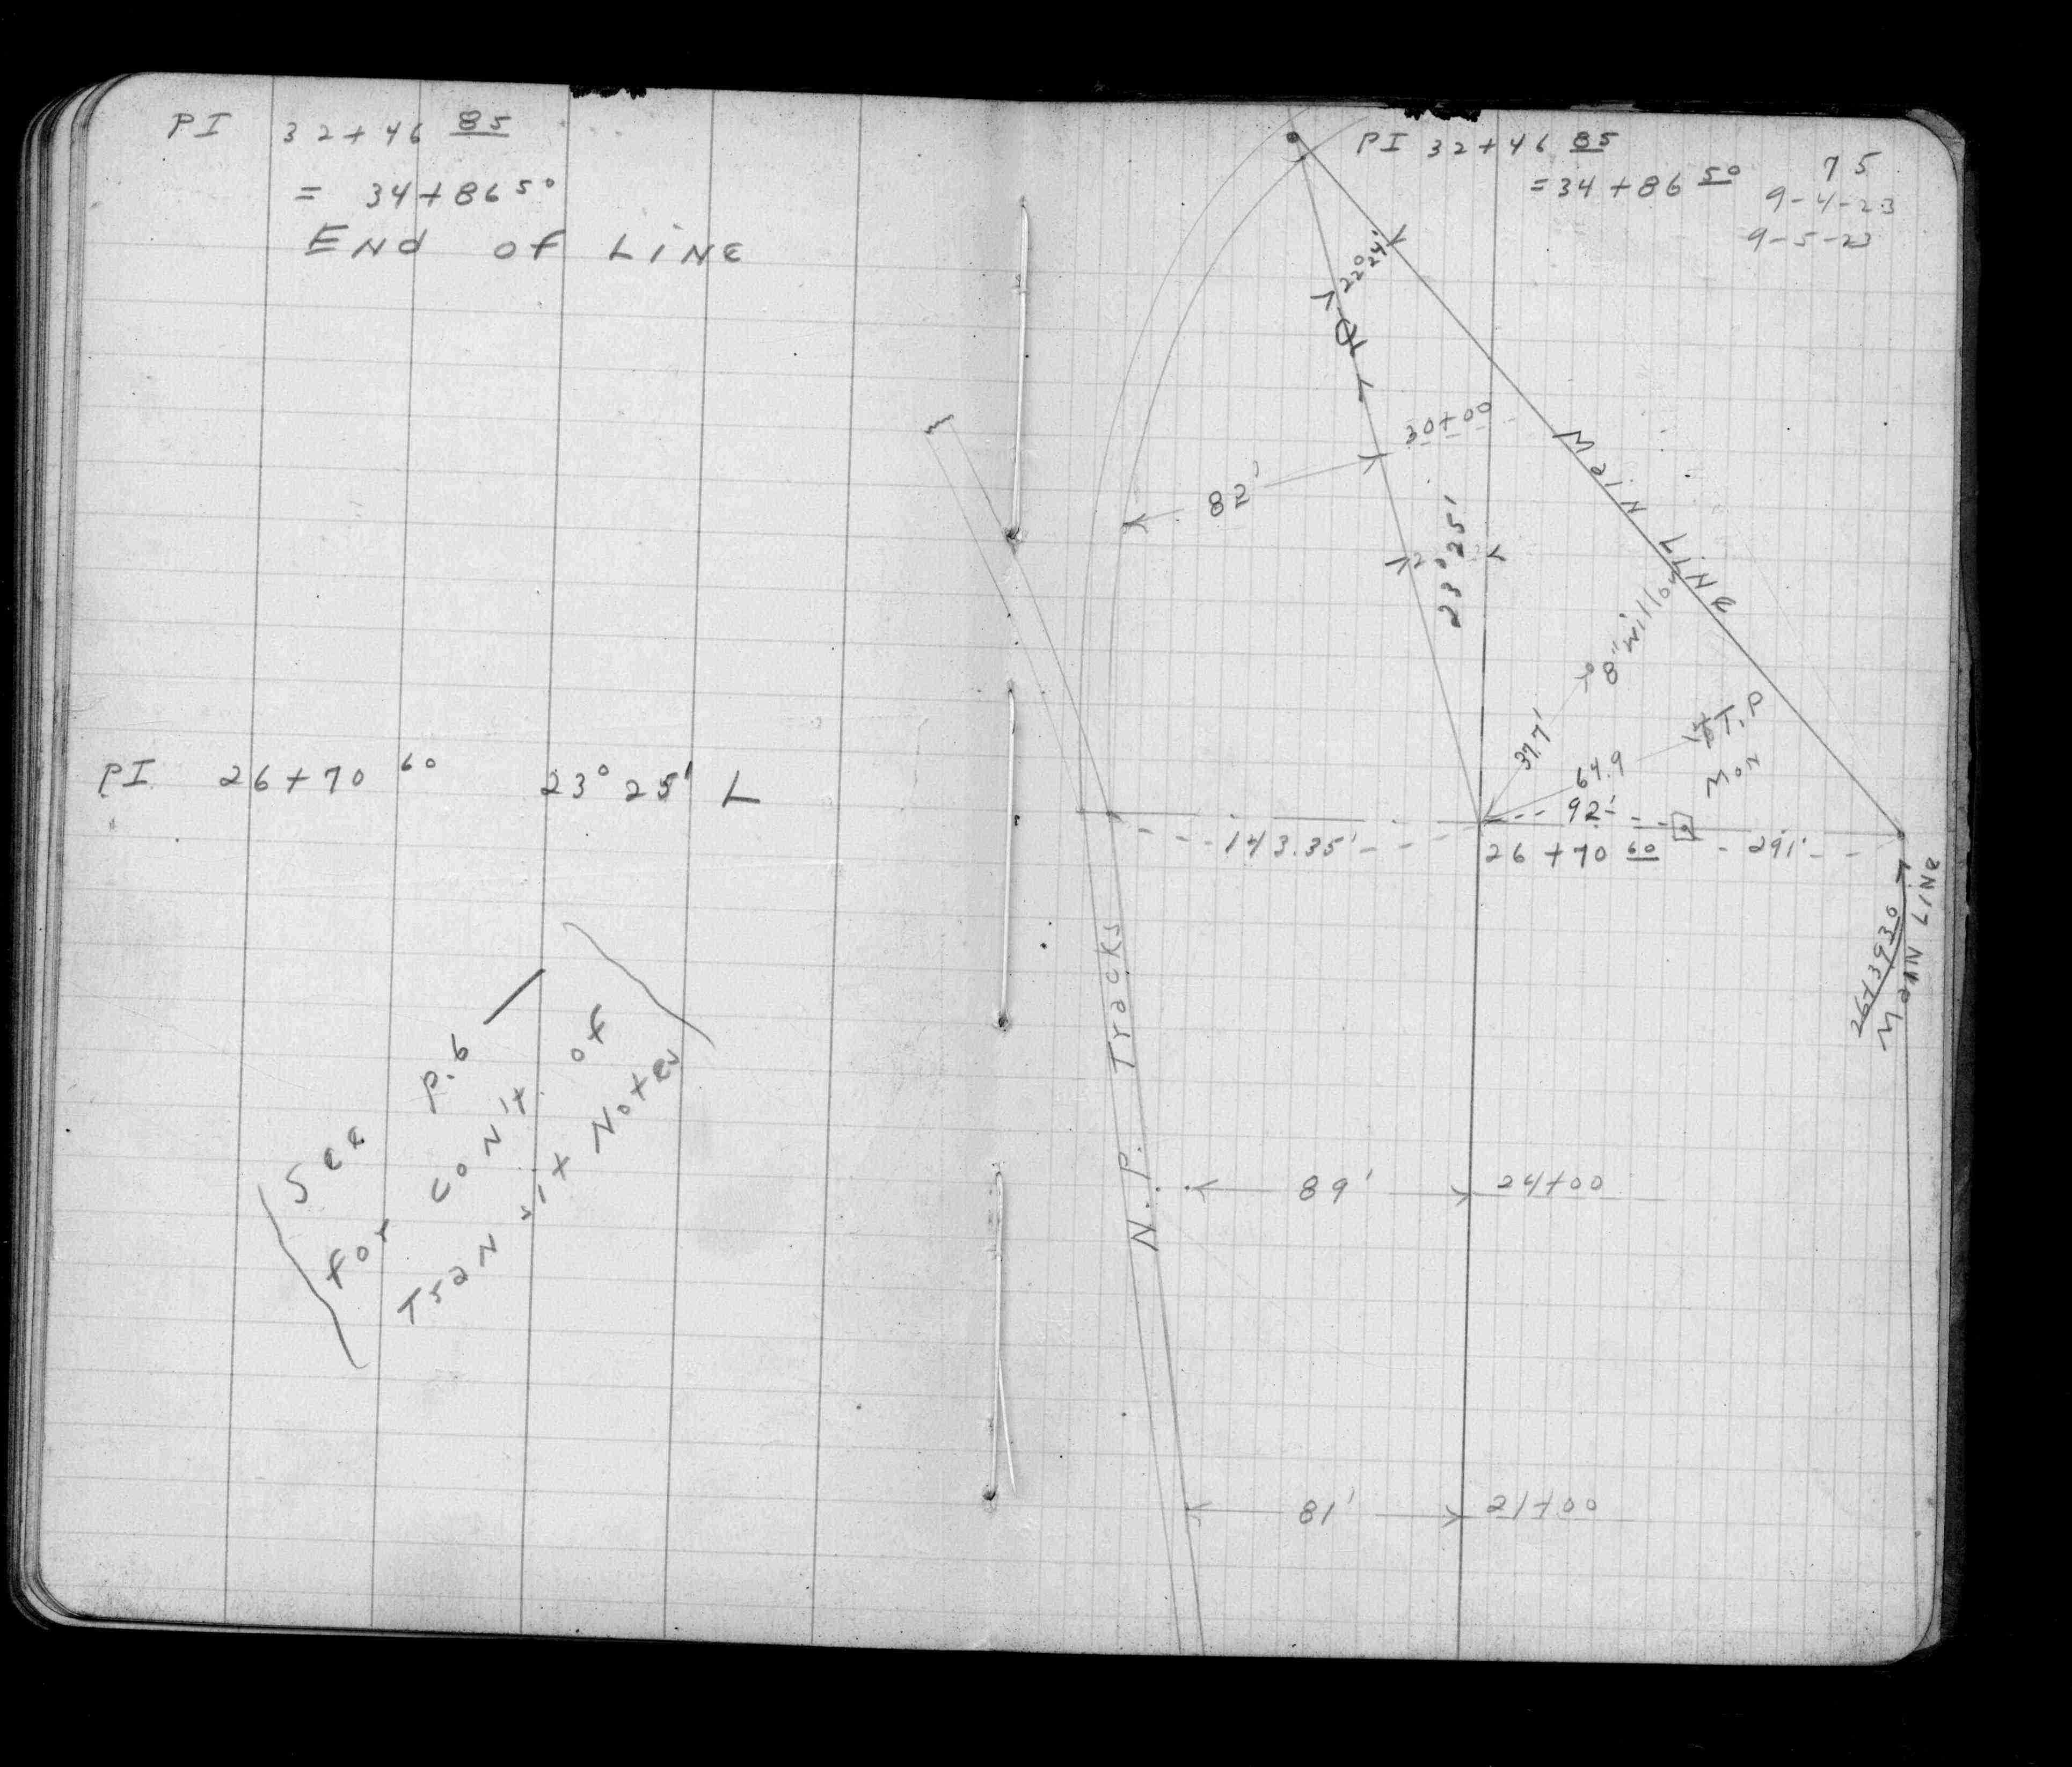 PI 32+46 85
= 34+86 50
END of LINE
PI 26+70 60 23° 25' L
See p.6
for con't. of
Transit Notes
PI 32+46 85
=34+86 50
75
9-4-23
9-5-23
22° 24'
30+00
82'
23° 25'
New Line
8" willow
37.7'
T.P
64.9
Mon
92'
143.35'
26+70 60
291'
26+39 30
Main Line
N.P. Tracks
89'
24+00
81'
21+00